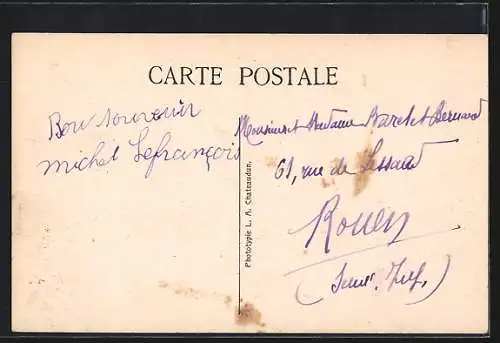 CARTE POSTALE
Bon souvenir
Michel Lefrançois
Phototypie L. A. Chateaudun.
Monsieur et Madame Bernard
61, rue de Lessard
Rouen
(Seine Inf.)